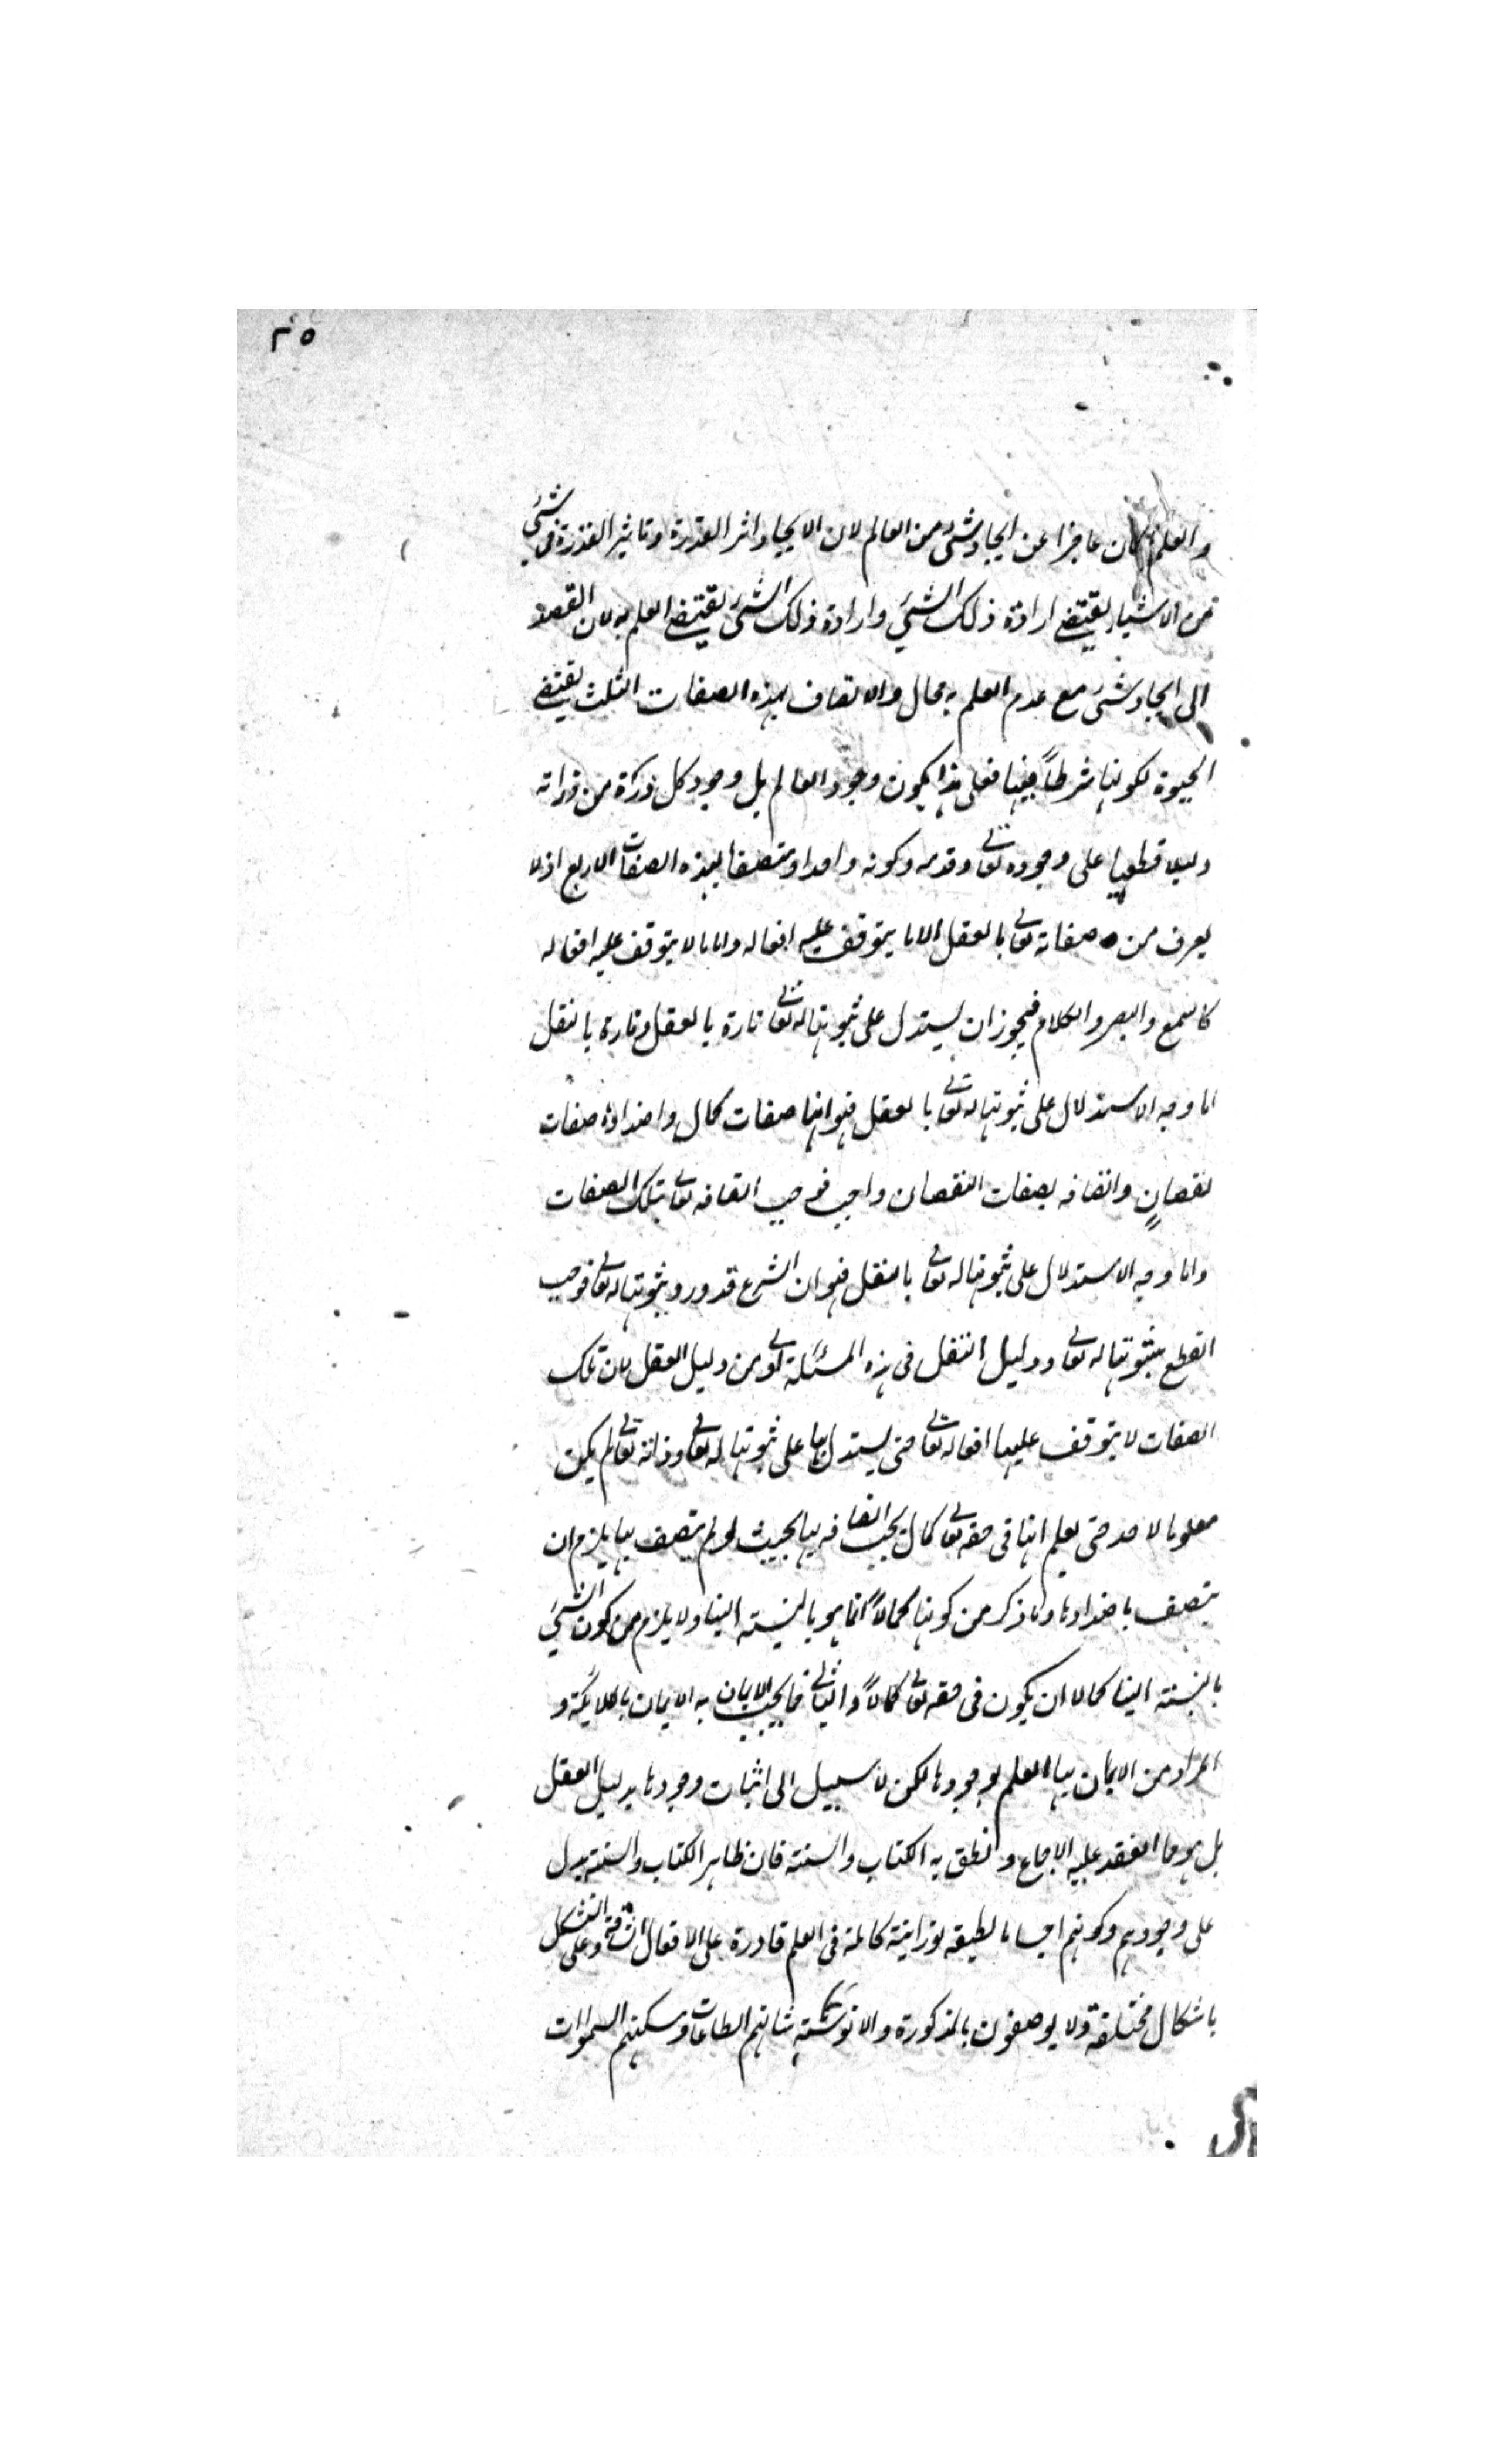 ٣٥
والعلم لكان عاجزا عن ايجاد شئ من العالم لان الايجاد اثر القدرة وتاثير القدرة فى شئ
من الاشياء يقتضى ارادة ذلك الشئ وارادة ذلك الشئ يقتضى العلم به لان القصد
الى ايجاد شئ مع عدم العلم به محال والاتصاف بهذه الصفات الثلث يقتضى
الحيوة لكونها شرطاً فيها فعلى هذا يكون وجود العالم بل وجود كل ذرة من ذراته
دليلا قطعيا على وجوده تعالى وقدمه وكونه واحدا ومتصفا بهذه الصفات الاربع اذ لا
يعرف من صفاته تعالى بالعقل الا ما يتوقف عليه افعاله واما ما لا يتوقف عليه افعاله
كالسمع والبصر والكلام فيجوز ان يستدل على ثبوتها له تعالى تارة بالعقل وتارة بالنقل
اما وجه الاستدلال على ثبوتها له تعالى بالعقل فهو انها صفات كمال واضدادها صفات
نقصانٍ واتصافه بصفات النقصان واجب فوجب اتصافه تعالى بتلك الصفات
واما وجه الاستدلال على ثبوتها له تعالى بالنقل فهو ان الشرع قد ورد بثبوتها له تعالى فوجب
القطع بثبوتها له تعالى ودليل النقل فى هذه المسئلة اولى من دليل العقل لان تلك
الصفات لا يتوقف عليها افعاله تعالى حتى يستدل بها على ثبوتها له تعالى وذاته تعالى لم يكن
معلوما لاحد حتى يعلم انها فى حقه تعالى كمال يجب اتصافه بها بحيث لو لم يتصف بها يلزم ان
يتصف باضدادها وما ذكر من كونها كمالاً انما هو بالنسبة الينا ولا يلزم من كون الشئ
بالنسبة الينا كمالا ان يكون فى حقه تعالى كمالاً والثانى مما يجب الايمان به الايمان بالملائكة و
المراد من الايمان بها العلم بوجودها لكن لا سبيل الى اثبات وجودها بدليل العقل
بل هو مما انعقد عليه الاجماع ونطق به الكتاب والسنة فان ظاهر الكتاب والسنة يدل
على وجودهم وكونهم اجساما لطيفة نورانية كاملة فى العلم قادرة على الافعال الشاقة وعلى التشكل
باشكال مختلفة ولا يوصفون بالذكورة والانوثة شانهم الطاعات ومسكنهم السموات